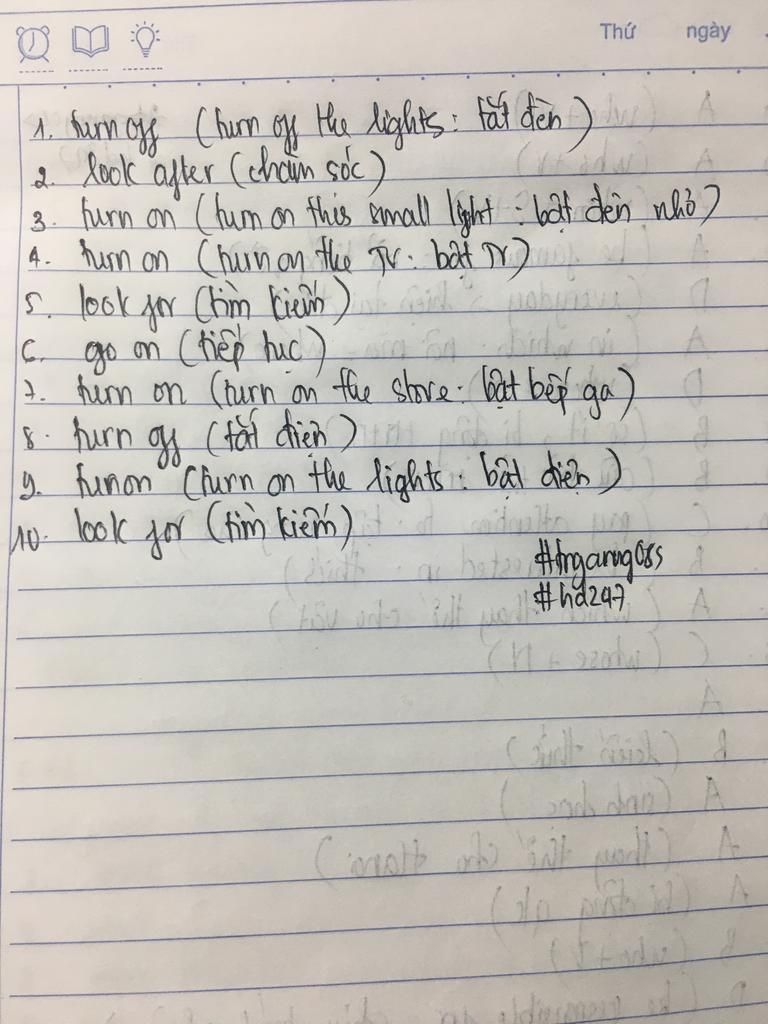 Thứ ngày
1. turn off (turn off the lights : tắt đèn)
2. look after (chăm sóc)
3. turn on (turn on this small light : bật đèn nhỏ)
4. turn on (turn on the TV : bật TV)
5. look for (tìm kiếm)
6. go on (tiếp tục)
7. turn on (turn on the stove : bật bếp ga)
8. turn off (tắt điện)
9. turn on (turn on the lights : bật điện)
10. look for (tìm kiếm)
#hd247